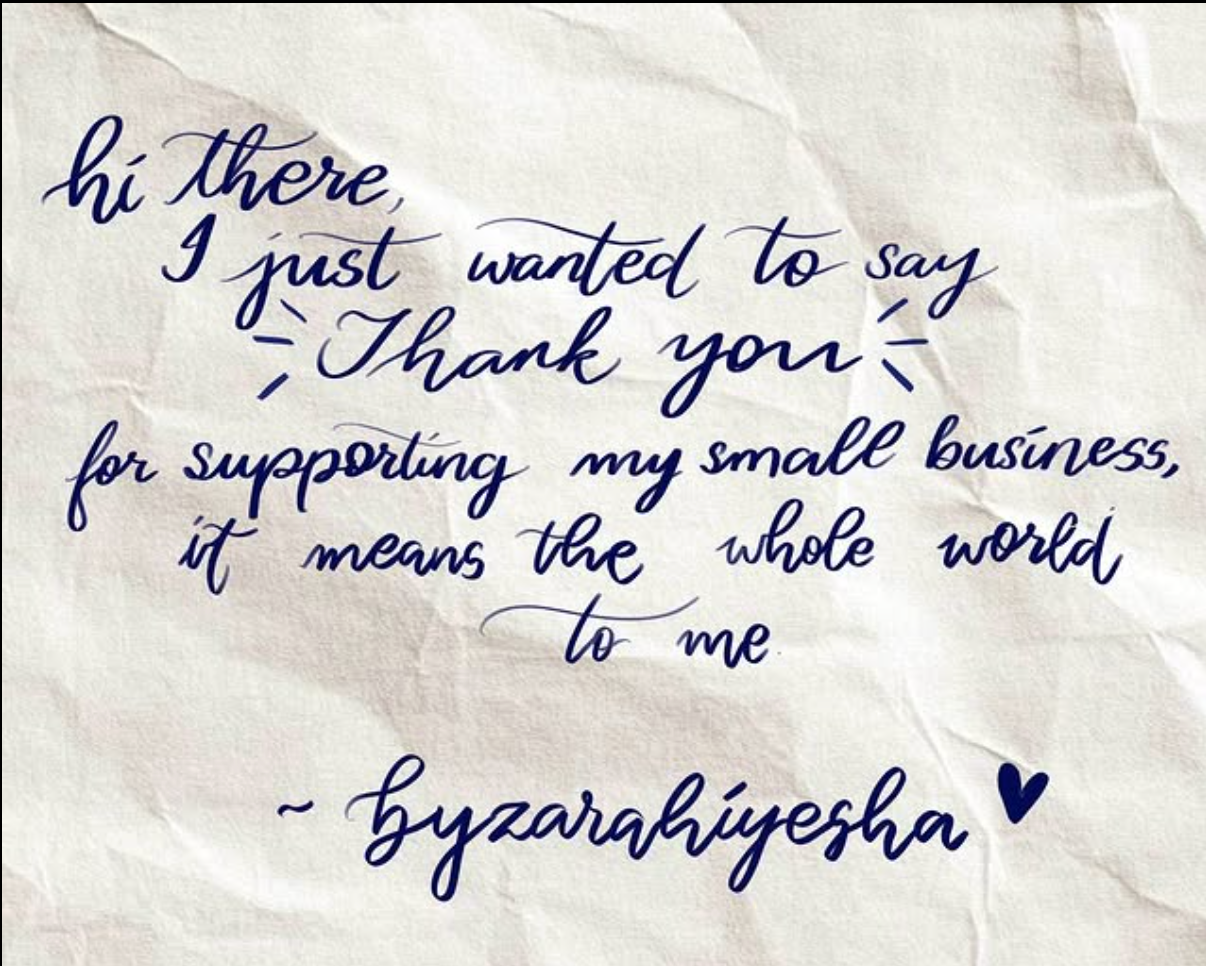 hi there,
I just wanted to say
Thank you
for supporting my small business,
it means the whole world
to me
~ byzarahiyesha ♥